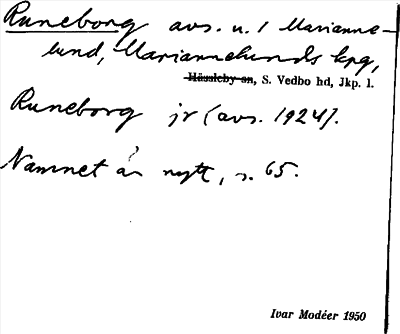 Runeborg avs. u. 1 Marianne-
lund, Mariannelunds kpg,
Hässleby sn, S. Vedbo hd, Jkp. l.
Runeborg jr (avs. 1924).
Namnet är nytt, s. 65.
Ivar Modéer 1950